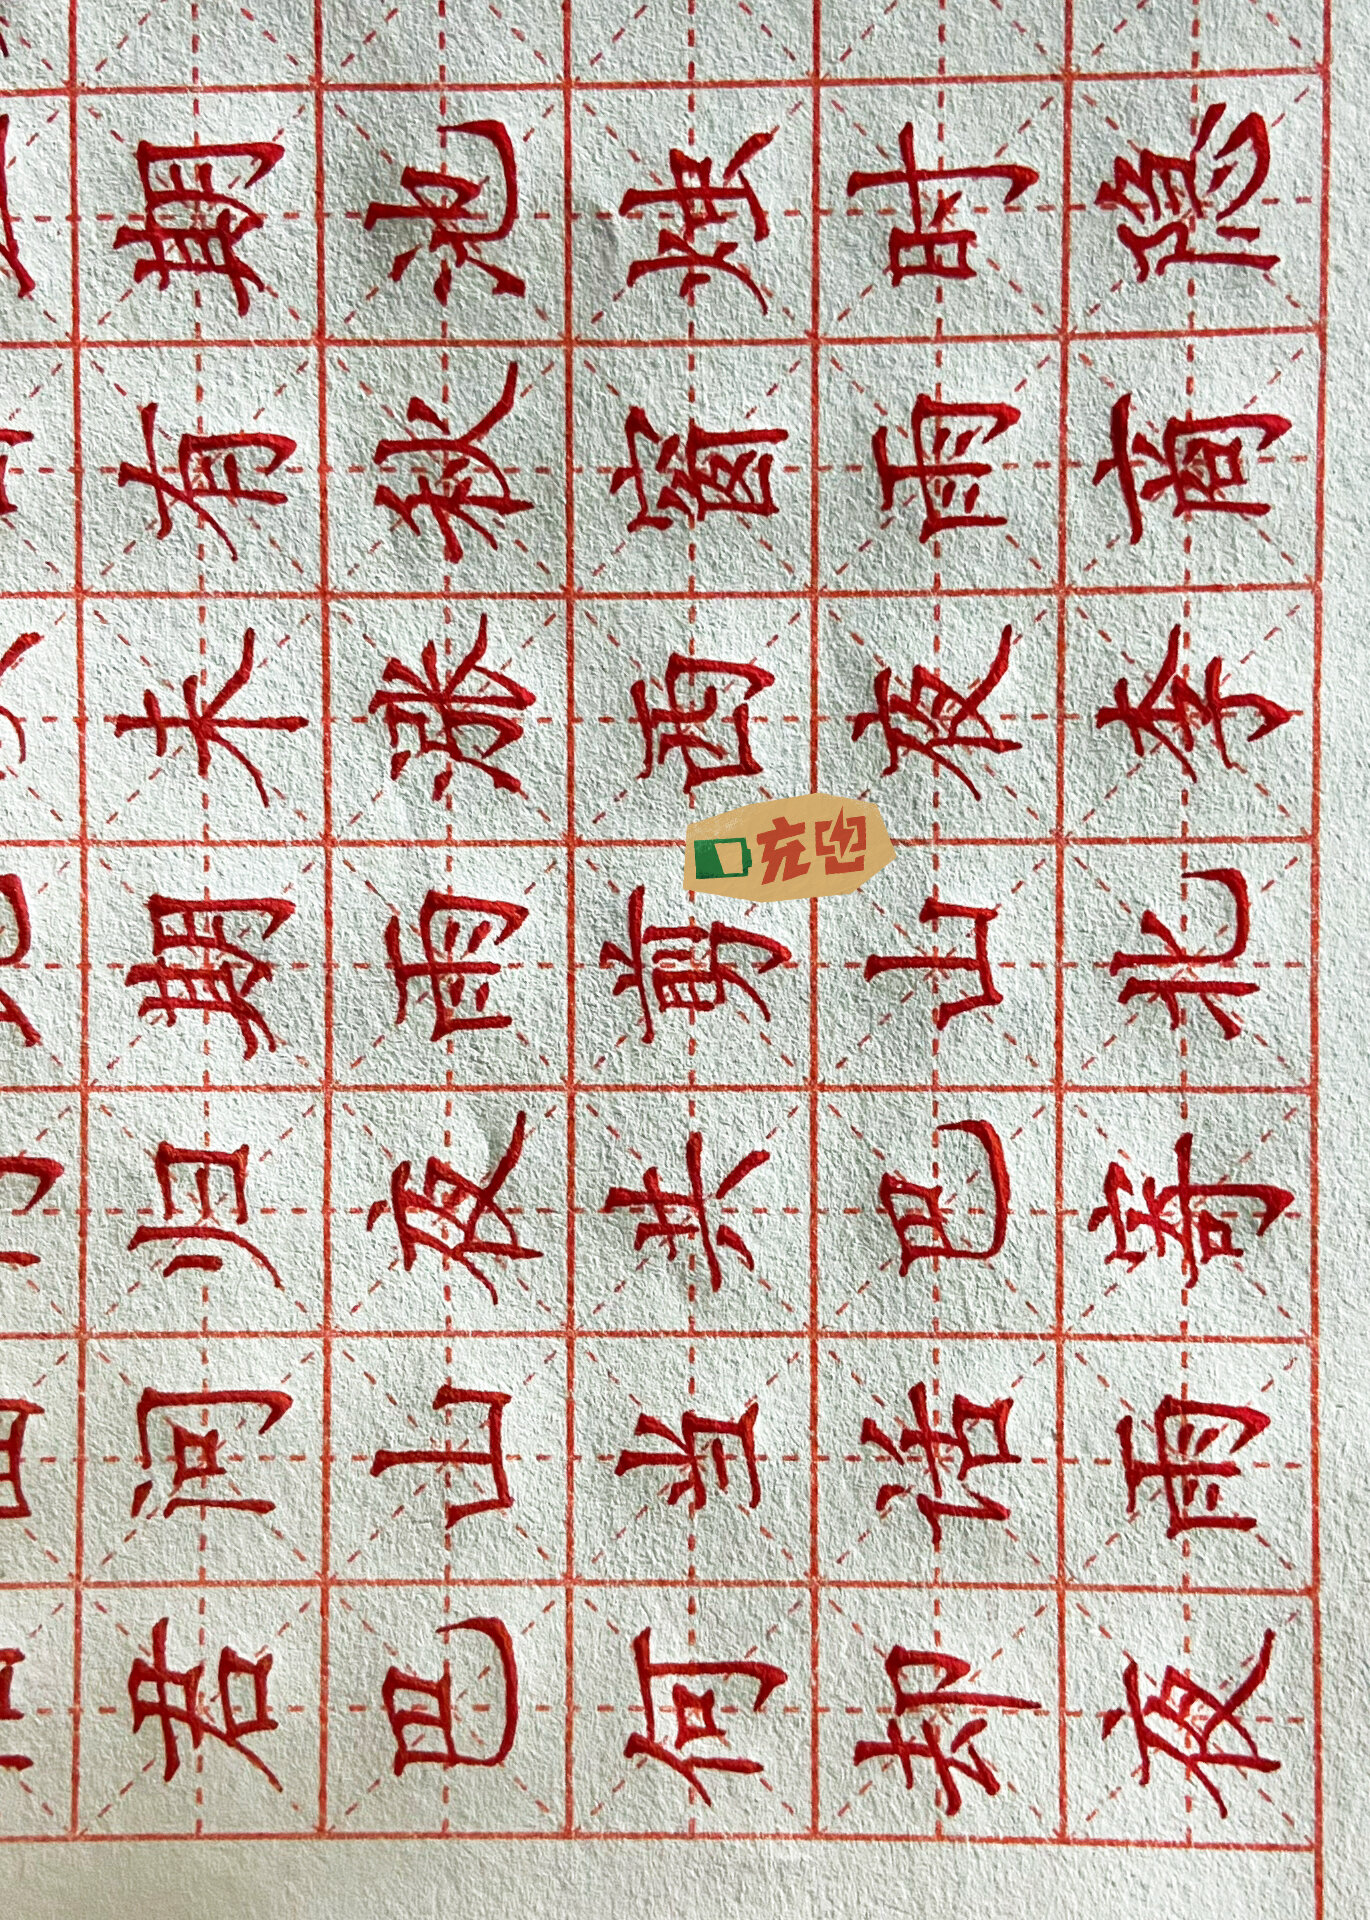 君问归期未有期
巴山夜雨涨秋池
何当共剪西窗烛
却话巴山夜雨时
夜雨寄北李商隐
充电